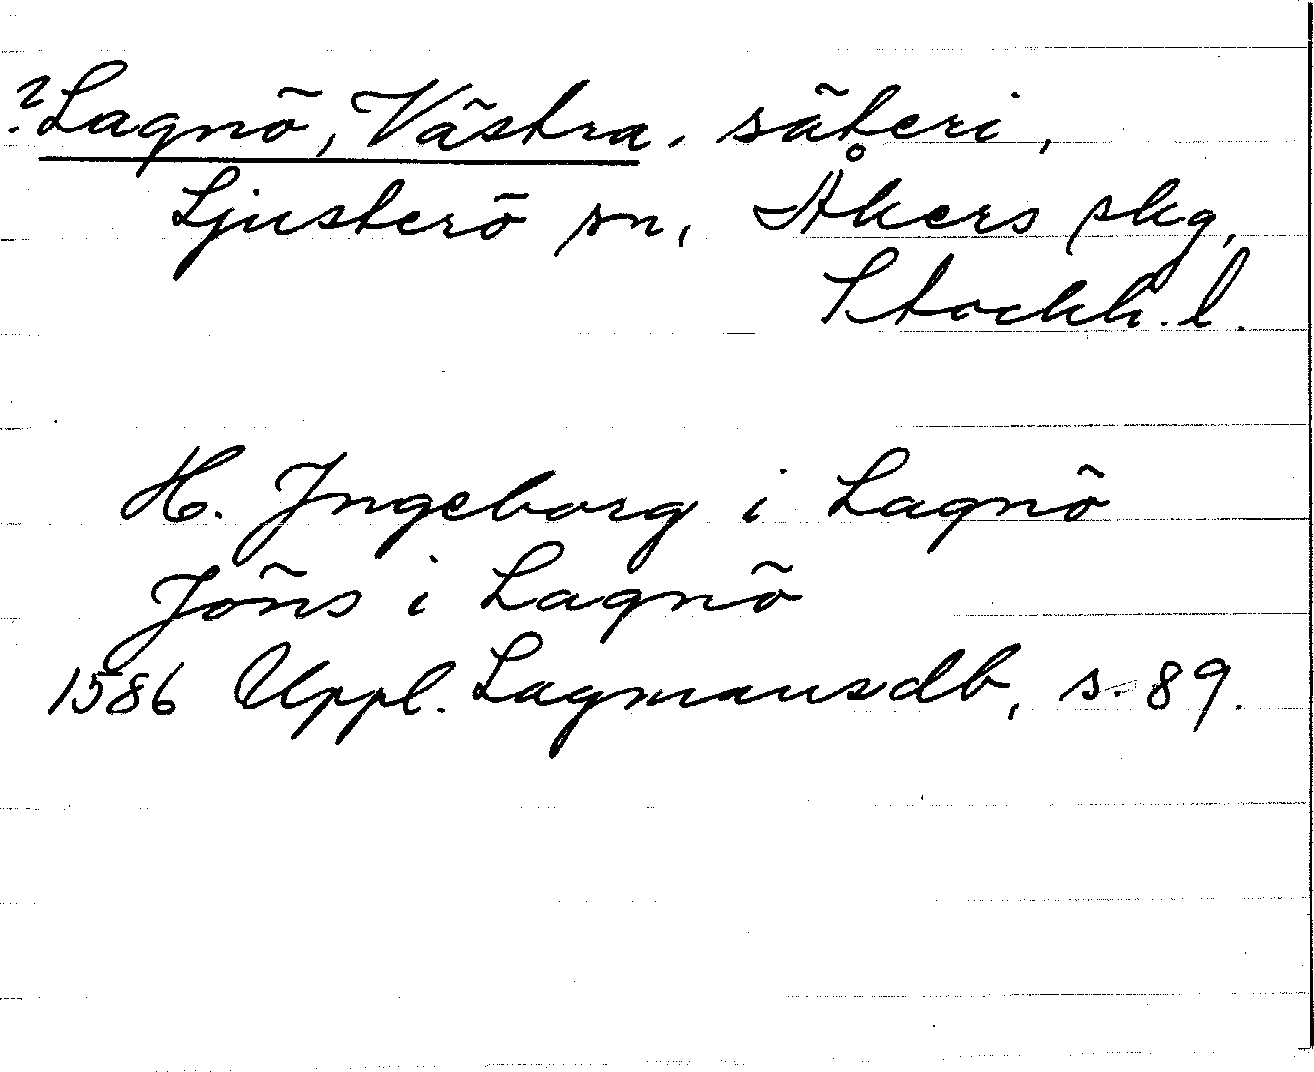 ? Lagnö, Västra, säteri,
Ljusterö sn, Åkers skg,
Stockh. l.
H. Ingeborg i Lagnö
Jöns i Lagnö
1586 Uppl. Lagmansdb, s. 89.